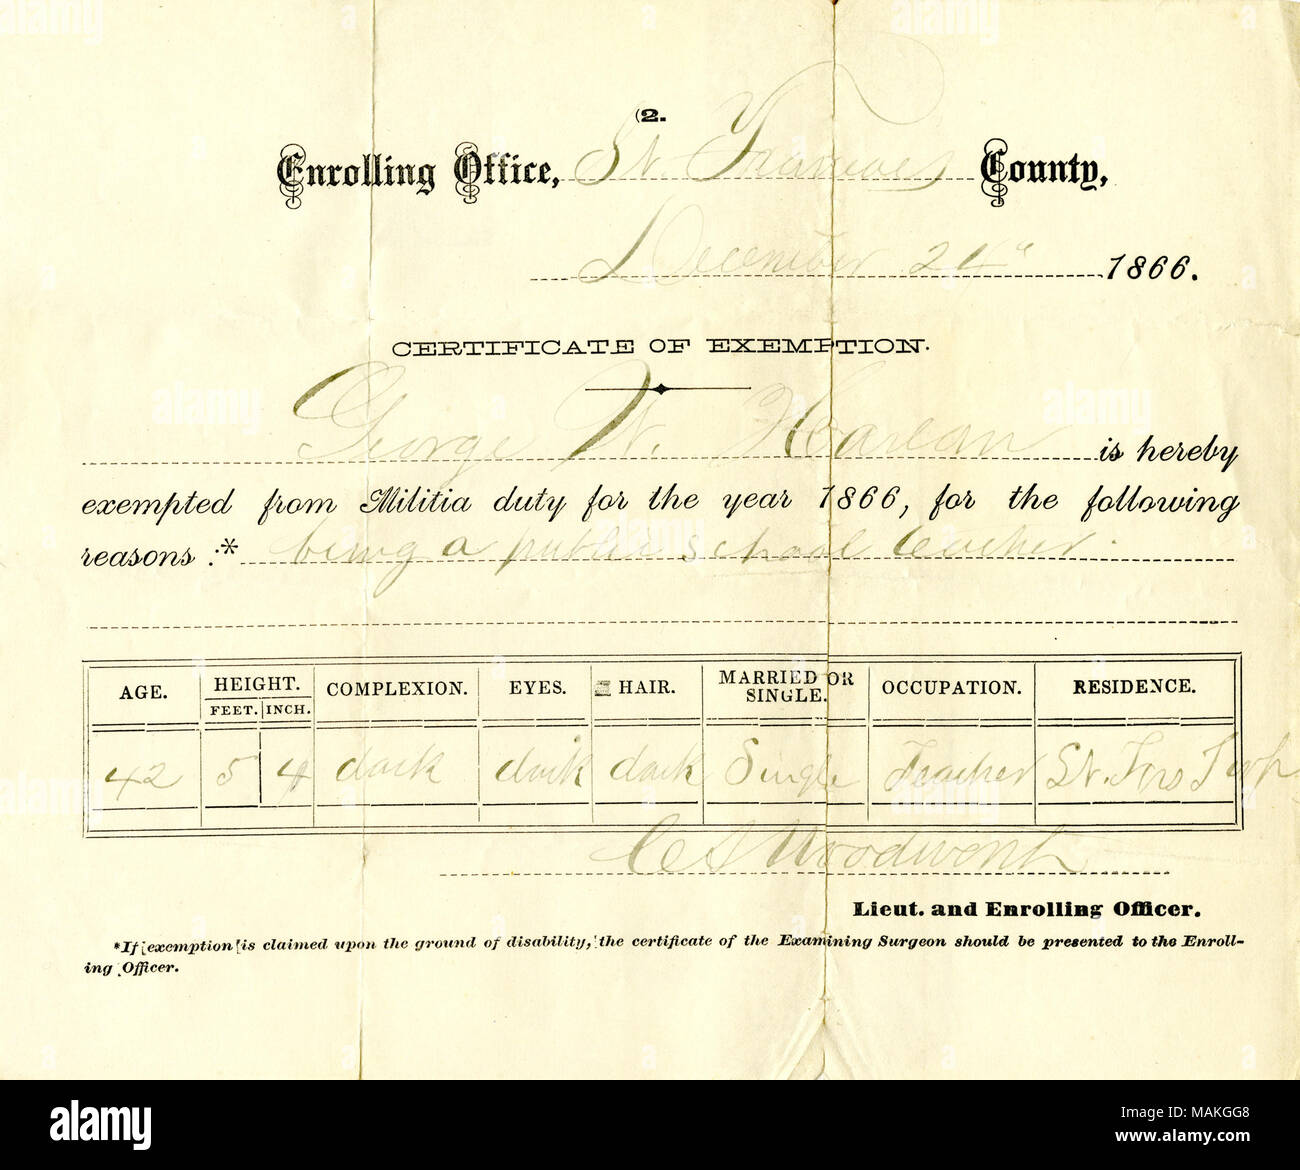 (2.
Enrolling Office, St. Francois County,
December 24th 1866.
CERTIFICATE OF EXEMPTION.
George W. Harlan is hereby
exempted from Militia duty for the year 1866, for the following
reasons :* being a public school teacher.
AGE. HEIGHT. COMPLEXION. EYES. HAIR. MARRIED OR SINGLE. OCCUPATION. RESIDENCE.
FEET. INCH.
42 5 4 dark dark dark Single Teacher St. Frs Twp
Woodworth
Lieut. and Enrolling Officer.
*If exemption is claimed upon the ground of disability, the certificate of the Examining Surgeon should be presented to the Enroll-
ing Officer.
alamy
Image ID: MAKGG8
www.alamy.com